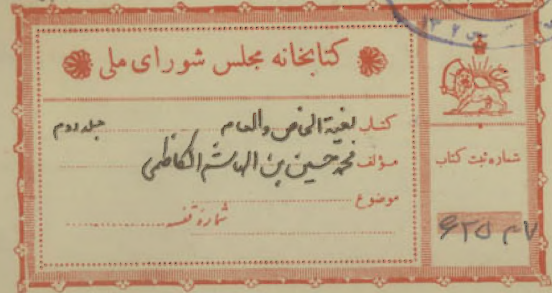 کتابخانه مجلس شورای ملی
کتاب بغیة الخاص والعام جلد دوم
مؤلف محمد حسین بن الهاشم الکاظمی
موضوع
شماره قفسه
شماره ثبت کتاب